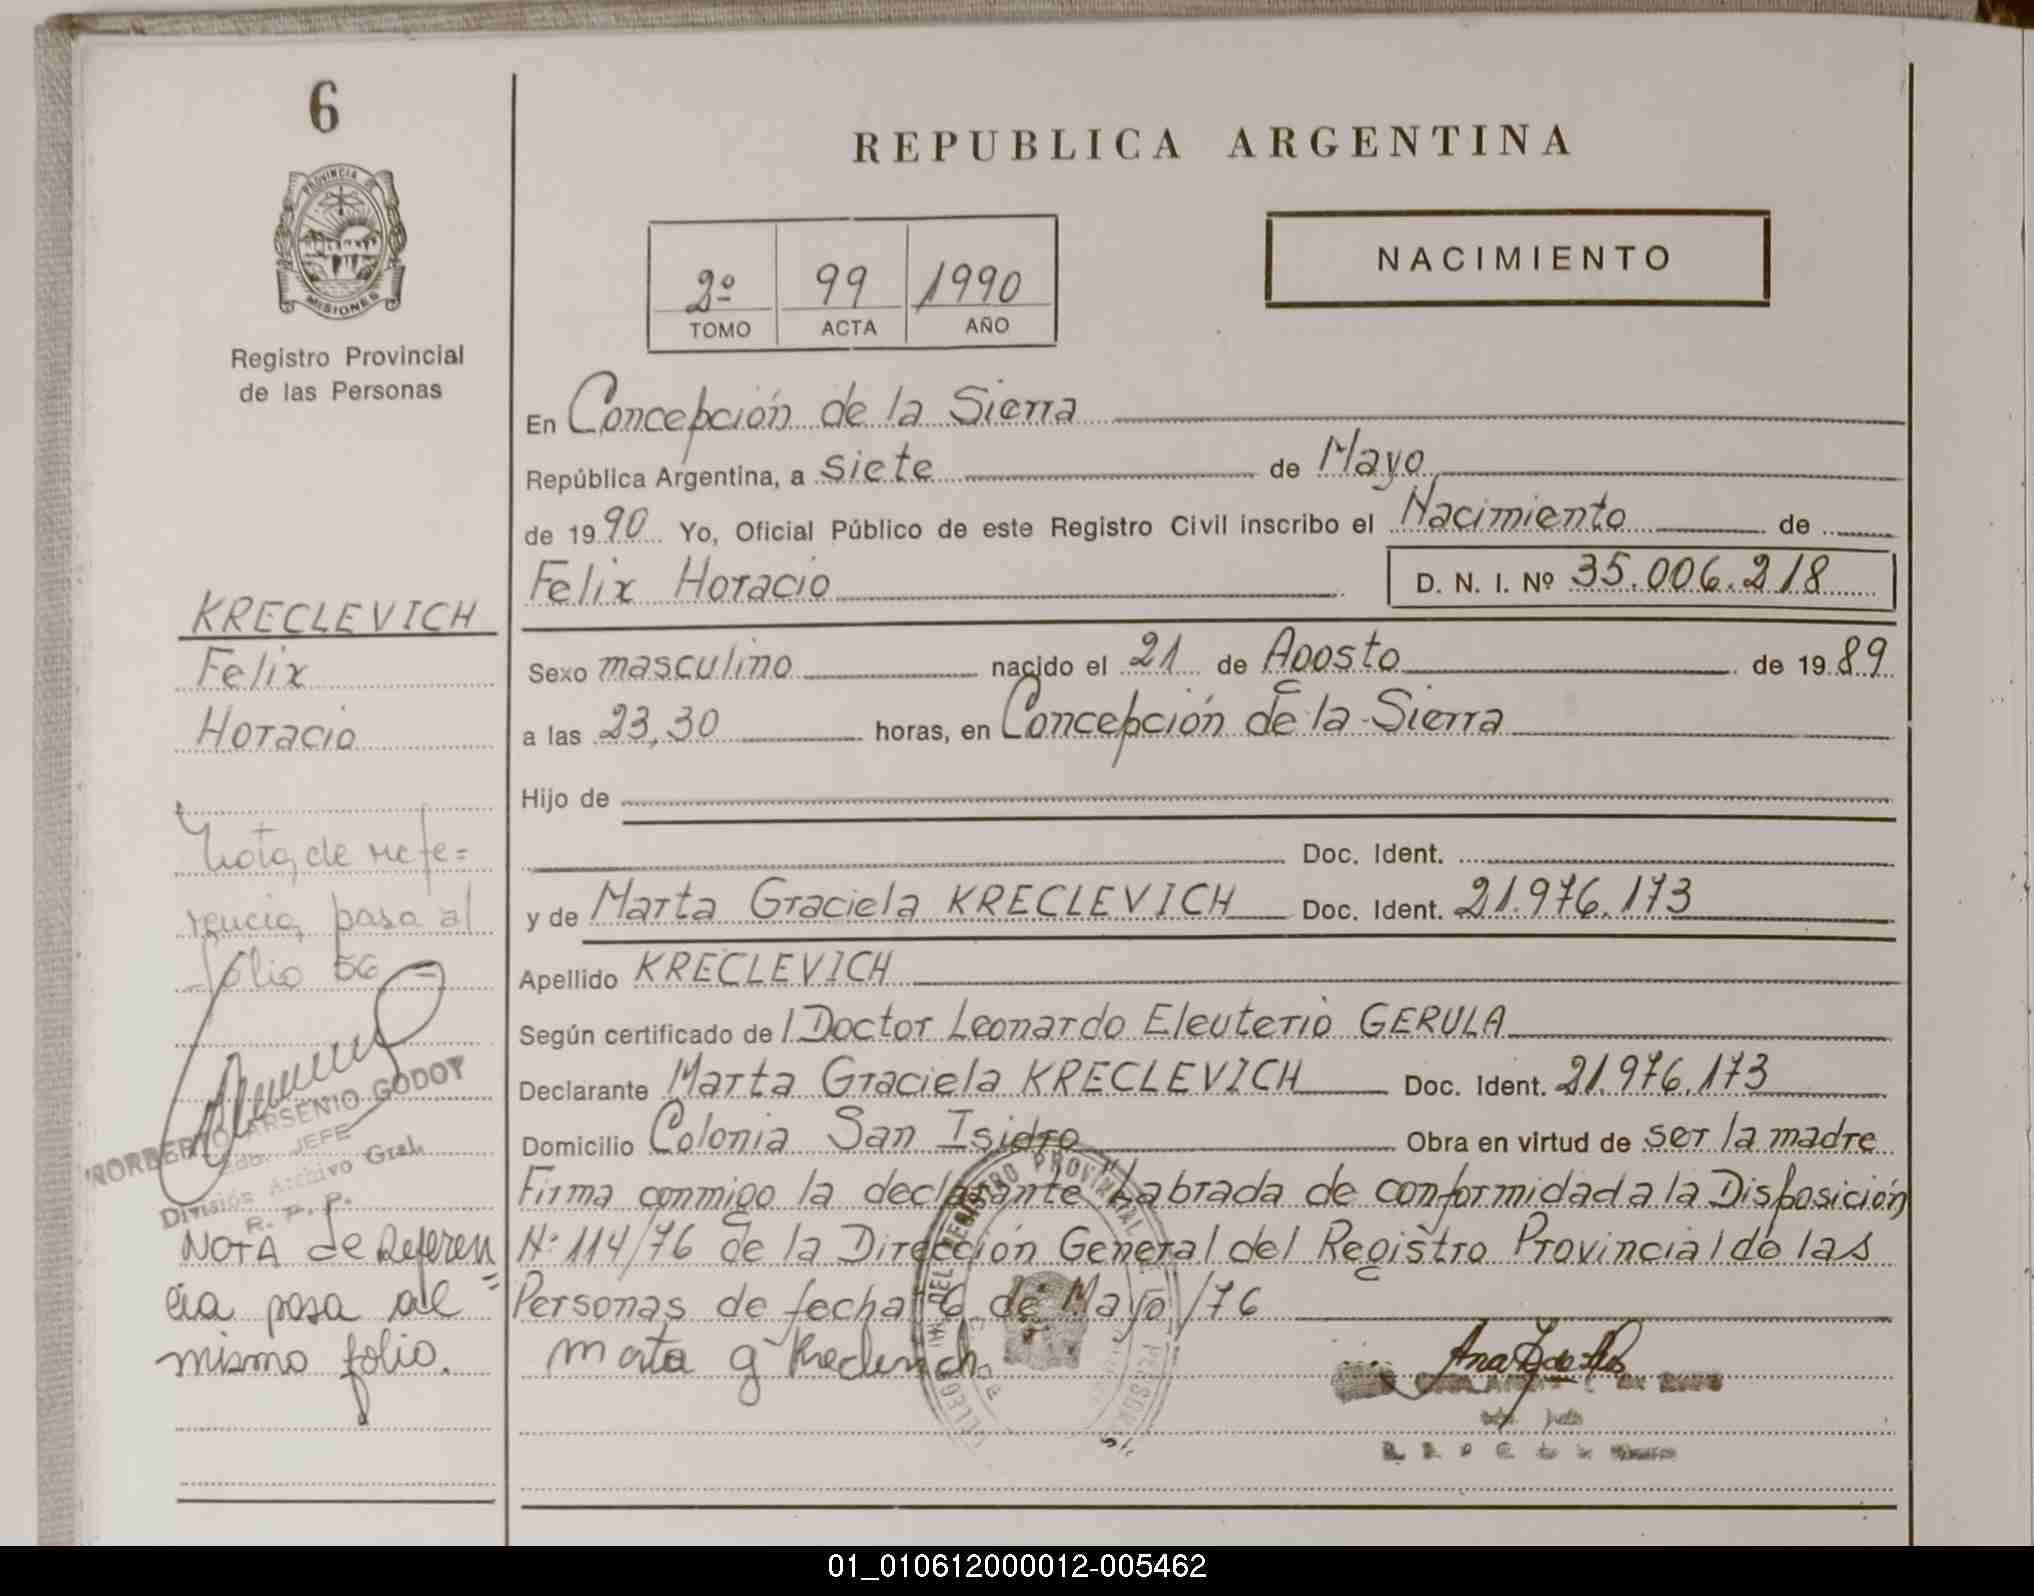 6
PROVINCIA DE
MISIONES
Registro Provincial
de las Personas
KRECLEVICH
Felix
Horacio
Nota de refe=
rencia pasa al
folio 56 -
NORBERTO ARSENIO GODOY
JEFE
División Archivo Gral.
R. P. P.
NOTA de Referen
cia pasa al =
mismo folio.
REPUBLICA ARGENTINA
NACIMIENTO
2º 99 1990
TOMO ACTA AÑO
En Concepción de la Sierra
República Argentina, a siete de Mayo
de 1990 Yo, Oficial Público de este Registro Civil inscribo el Nacimiento de
Felix Horacio D. N. I. Nº 35.006.218
Sexo masculino nacido el 21 de Agosto de 1989
a las 23,30 horas, en Concepción de la Sierra
Hijo de
Doc. Ident.
y de Marta Graciela KRECLEVICH Doc. Ident. 21.976.173
Apellido KRECLEVICH
Según certificado del Doctor Leonardo Eleuterio GERULA
Declarante Marta Graciela KRECLEVICH Doc. Ident. 21.976.173
Domicilio Colonia San Isidro Obra en virtud de ser la madre
Firma conmigo la declarante "Labrada de conformidad a la Disposición
Nº 114/76 de la Dirección General del Registro Provincial de las
Personas de fecha 6 de Mayo/76
Marta g Kreclevich
01_010612000012-005462